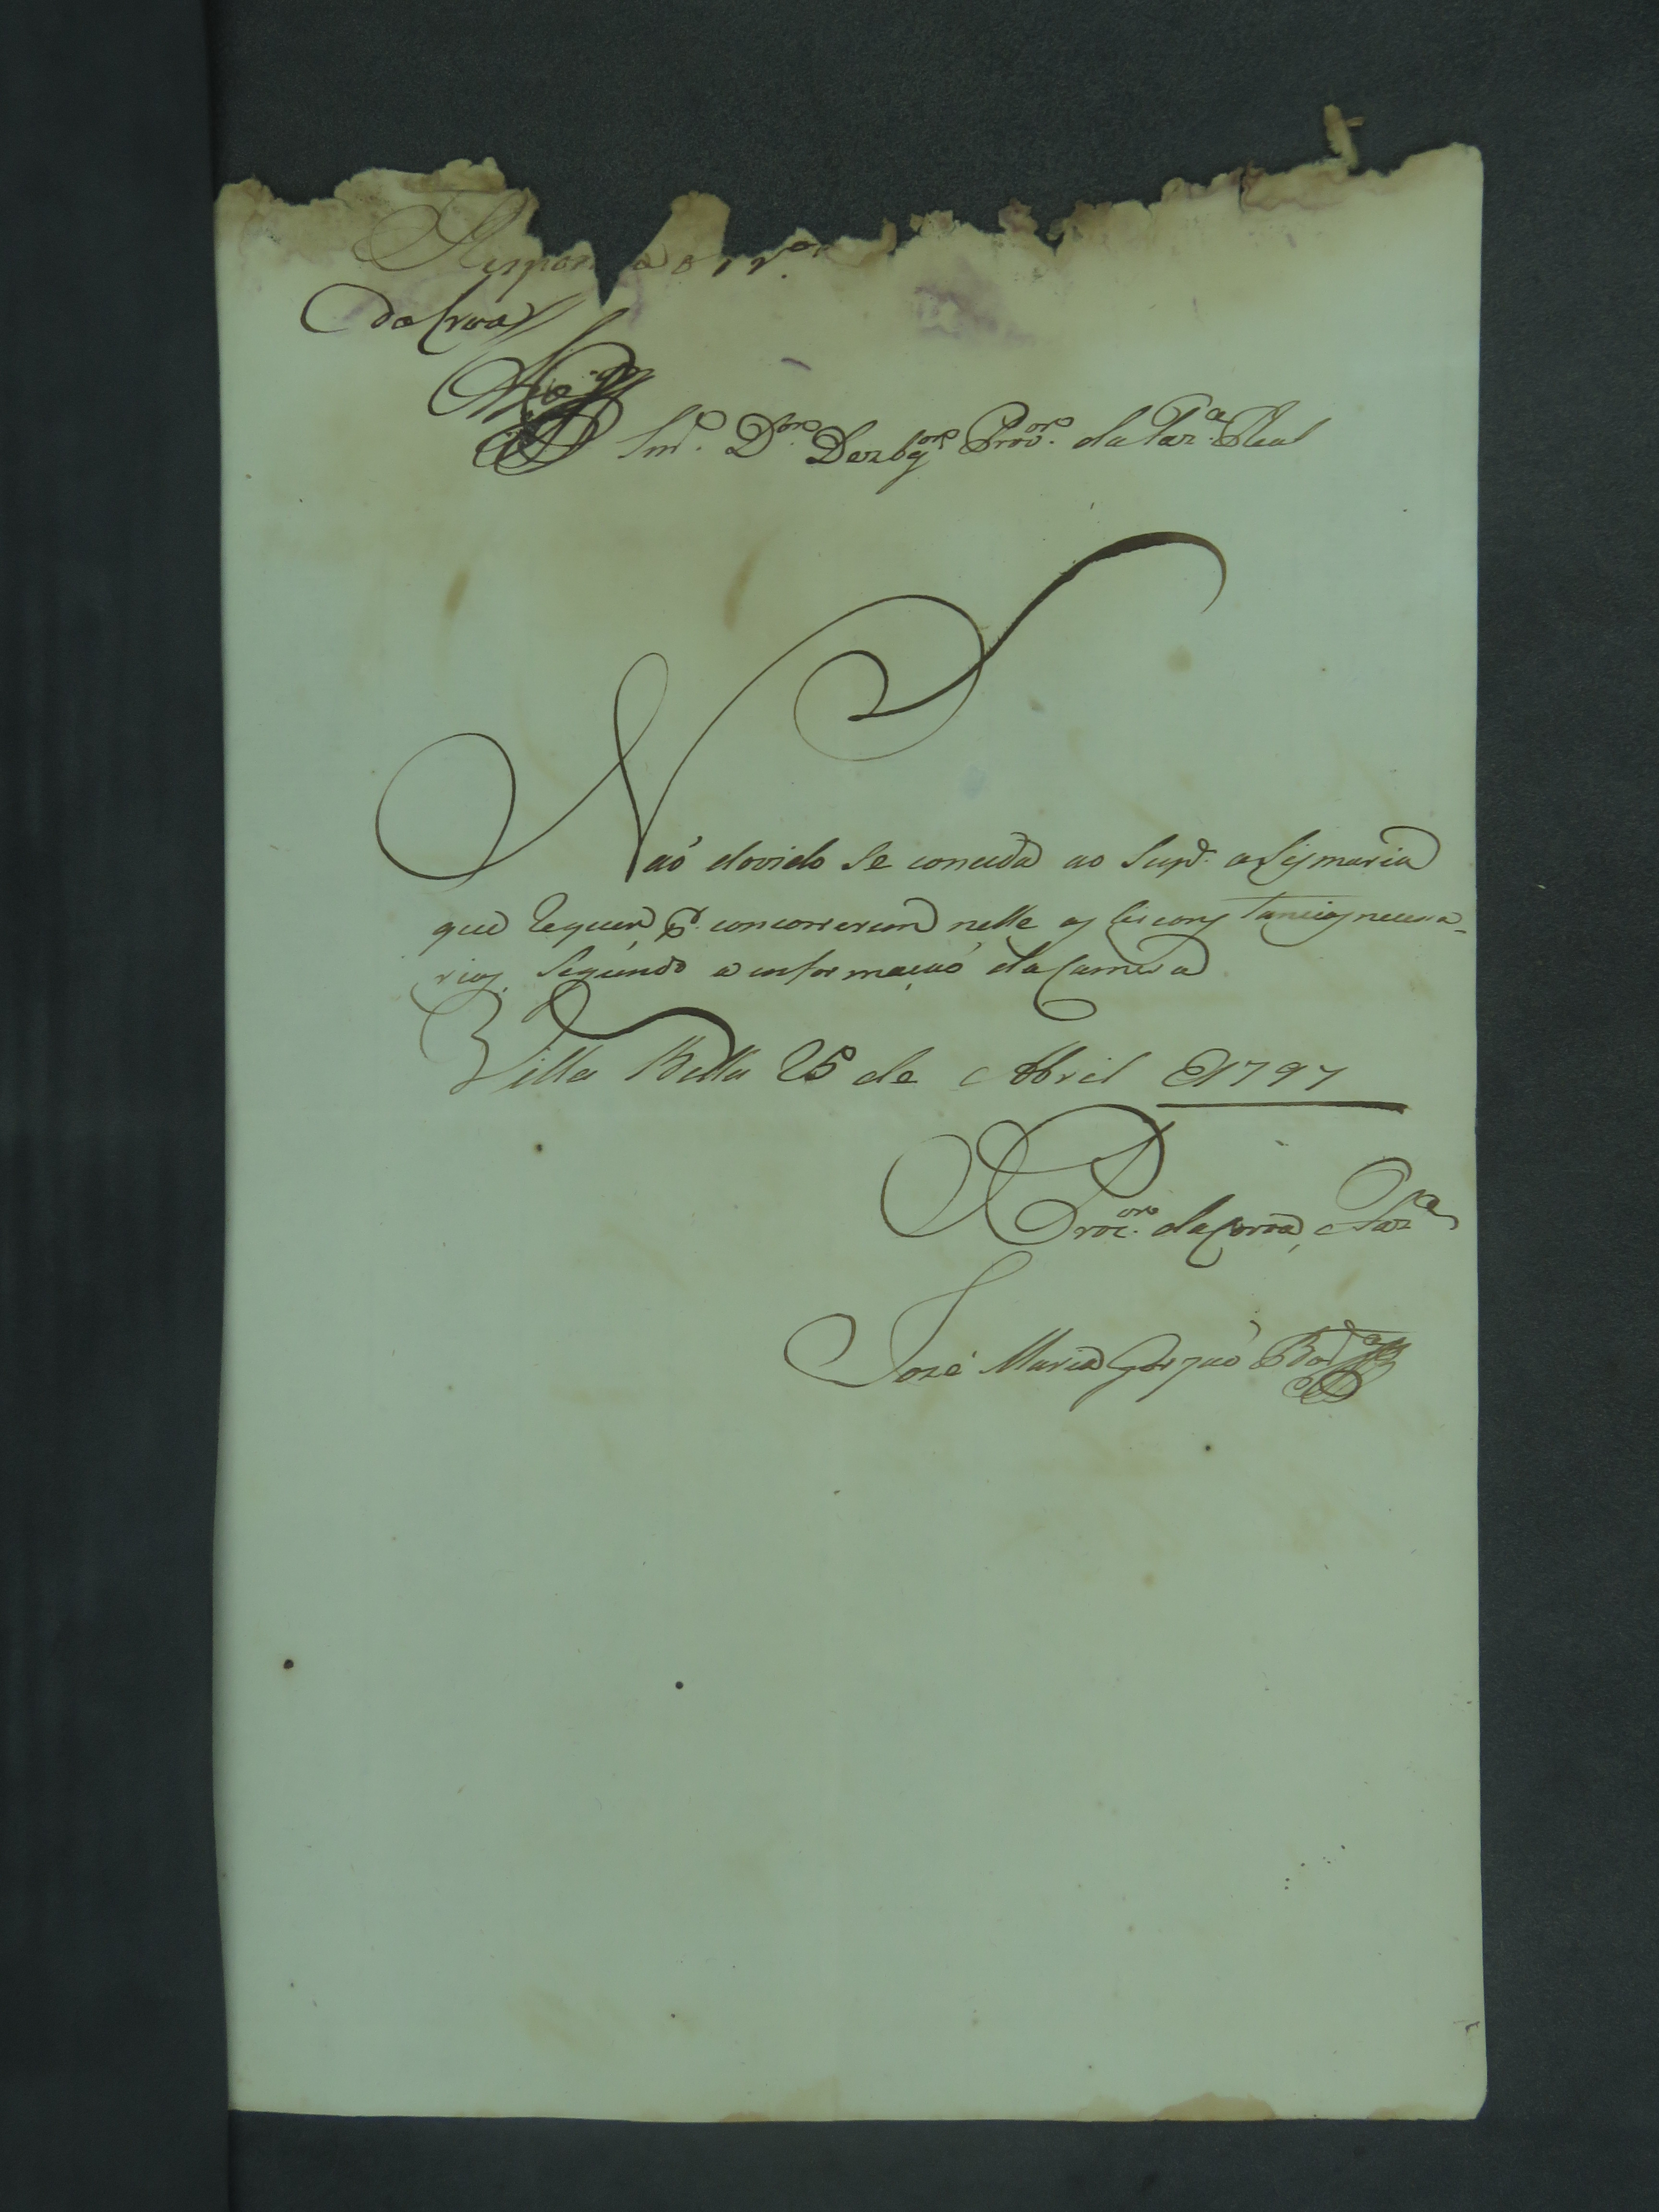 Respon  a o 
da Croa
Snr. Dor. Dezbgor. Provor. da Faz.a Real
Naó dovido Se conceda ao Supe. a Sismaria
que Requer, pr. concorrerem nelle as Circonstancias necesa-
rias, Segundo a informaçaó da Camera
Villa Bella 25 de Abril de 1797
O Procor. da Coroa, e Faz.a
Joze Maria